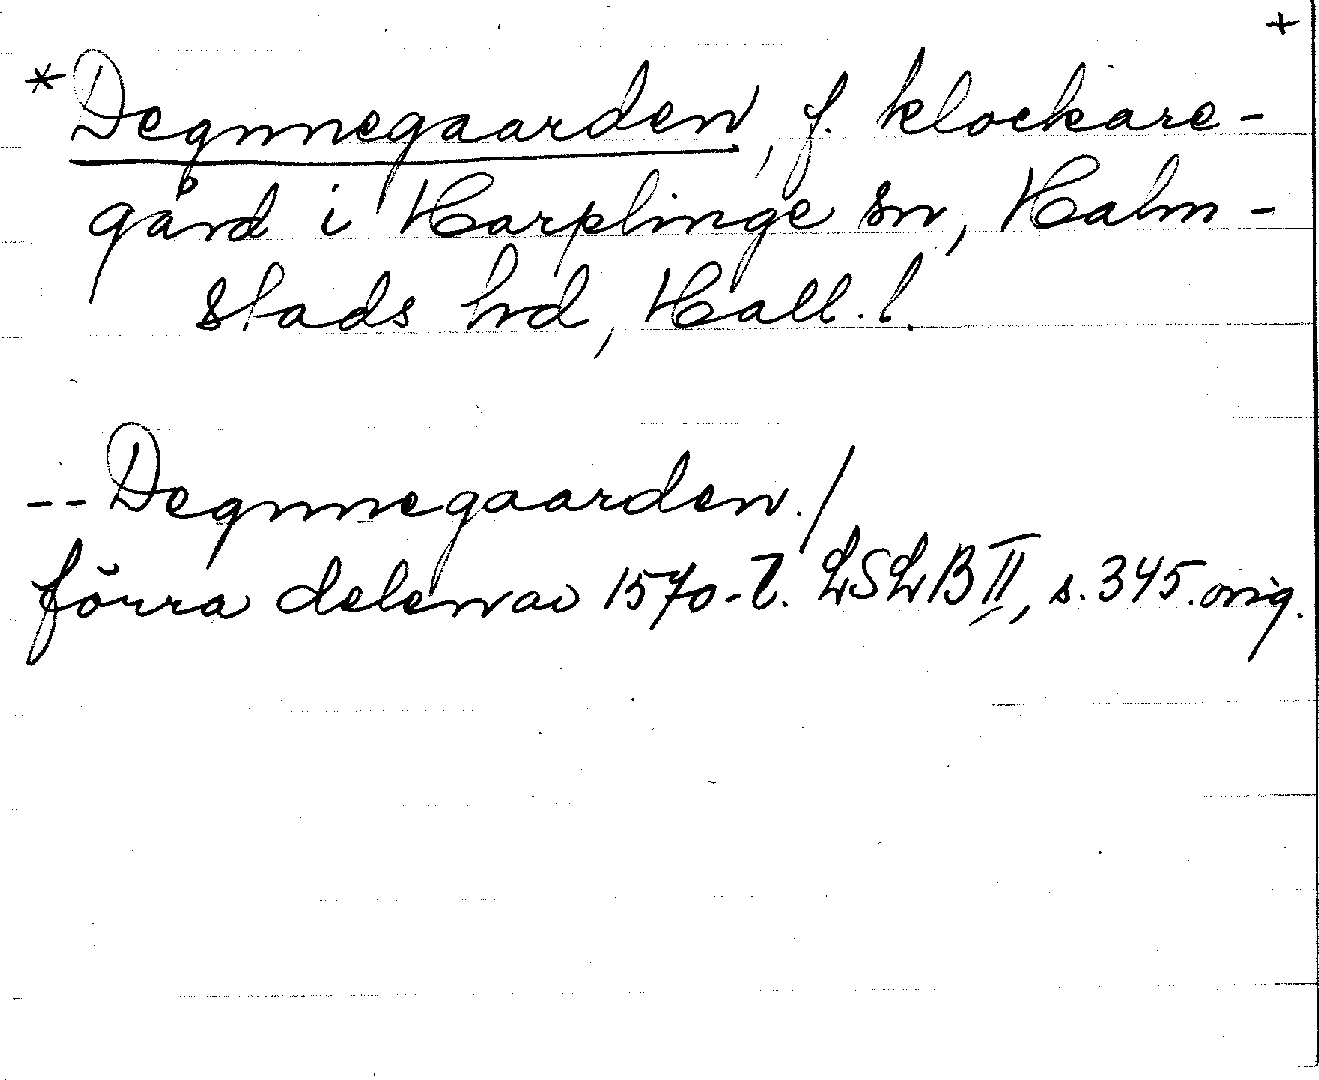 +
*Degnnegaarden, f. klockare-
gård i Harplinge sn, Halm-
stads hd, Hall. l.
-- Degnnegaarden./
förra delen av 1570-t. LSLB II, s. 345. orig.